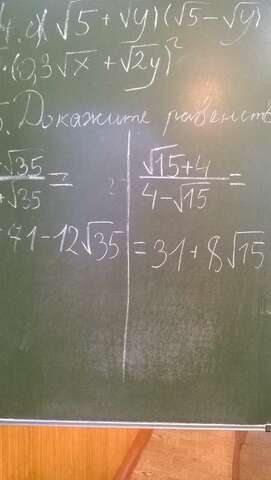 4. а) √5 + √y)(√5 − √y)
(0,3√x + √2y)²
5. Докажите равенств
√35 / √35 = ?
71 − 12√35
(√15 + 4) / (4 − √15) =
= 31 + 8√15